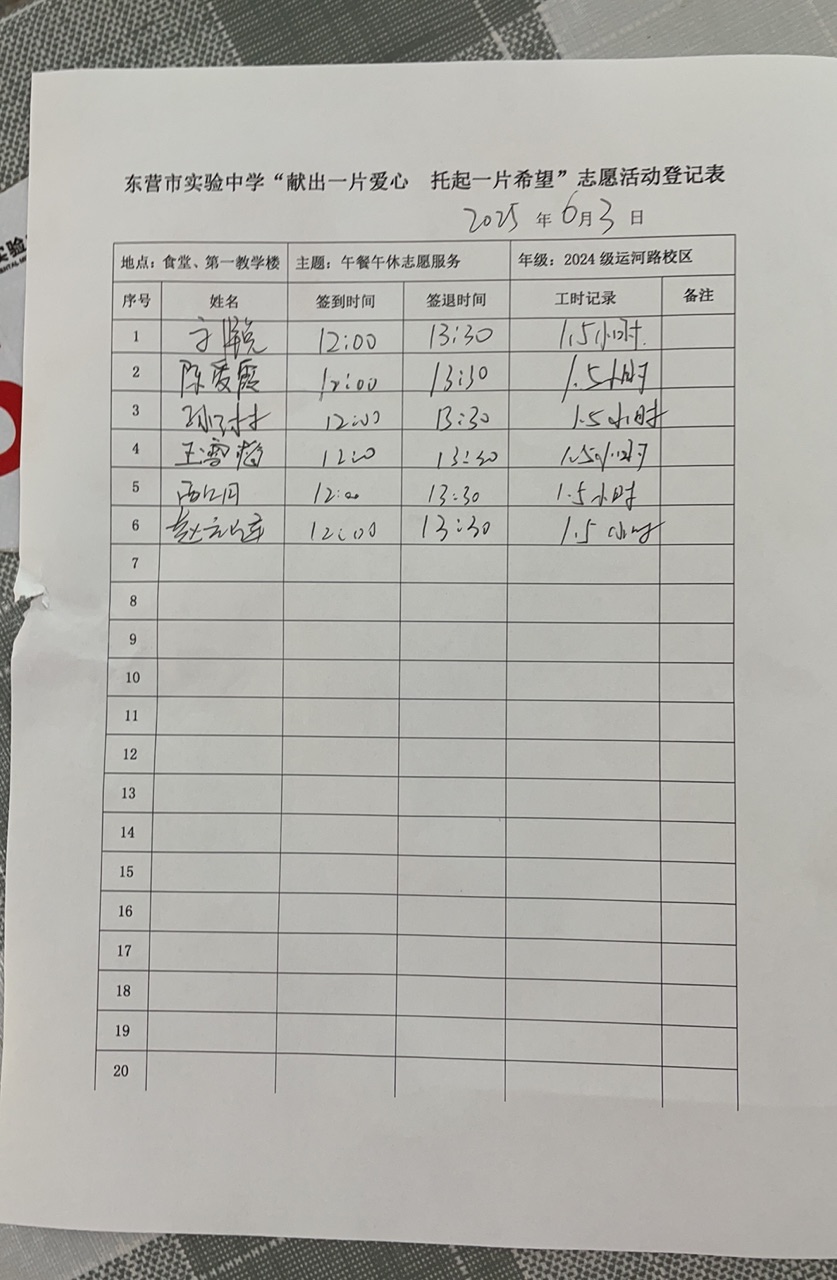 东营市实验中学“献出一片爱心 托起一片希望”志愿活动登记表
2025 年 6月3 日
地点：食堂、第一教学楼 主题：午餐午休志愿服务 年级：2024 级运河路校区
序号 姓名 签到时间 签退时间 工时记录 备注
1 12:00 13:30 1.5小时.
2 陈爱霞 12:00 13:30 1.5小时
3 12:00 13:30 1.5小时
4 王雪 12:00 13:30 1.5小时
5 12:00 13:30 1.5小时
6 赵 12:00 13:30 1.5小时
7
8
9
10
11
12
13
14
15
16
17
18
19
20
实验